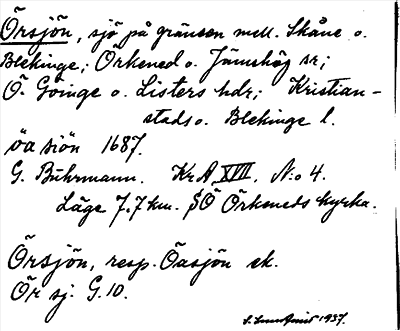 Örsjön, sjö på gränsen mell. Skåne o.
Blekinge; Örkened o. Jämshög sr;
Ö. Göinge o. Listers hdr; Kristian-
stads o. Blekinge l.
öa siön 1687.
G. Buhrmann. KrA XVII. N:o 4.
Läge 7,7 km. SÖ Örkeneds kyrka.
Örsjön, resp. Öasjön ek.
Ör sj. G.10.
1937.